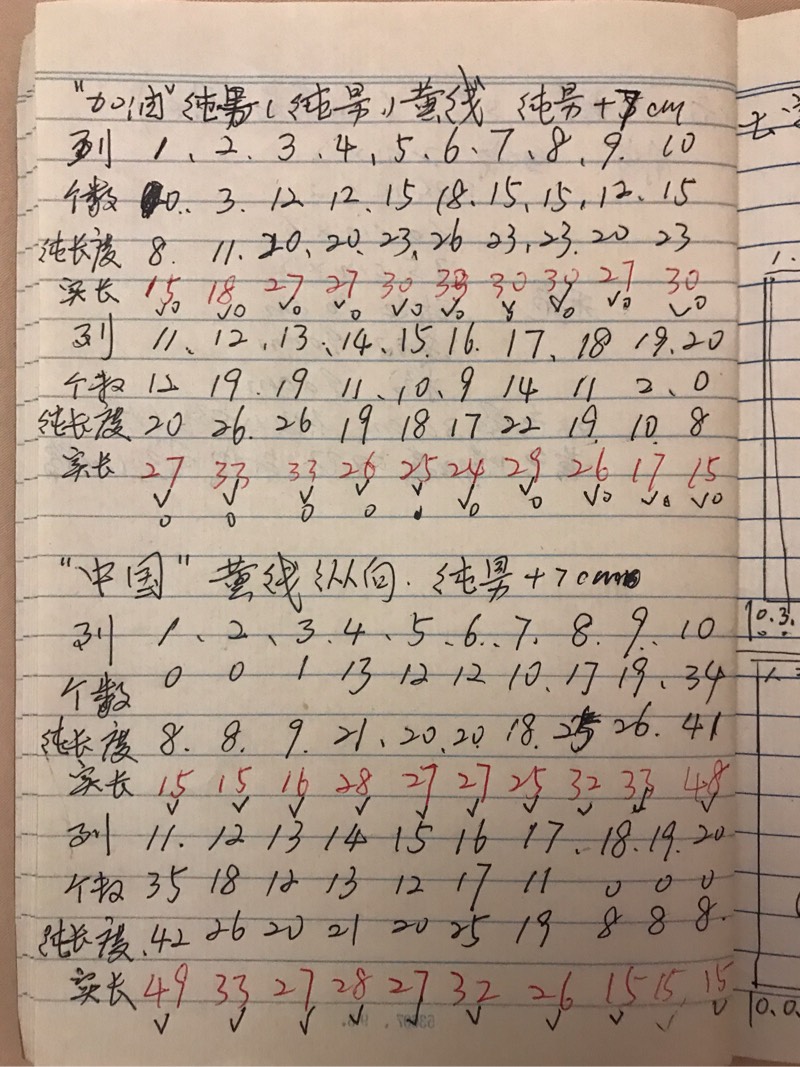 "加油"纯男(纯男)黄线 纯男+7cm
列 1、2、3、4、5、6、7、8、9、10
个数 0、3、12、12、15 18、15、15、12、15
纯长度 8. 11. 20、20、23、26 23、23、20 23
实长 15 18 27 27 30 33 30 30 27 30
列 11、12、13、14、15、16、17、18 19、20
个数 12 19、19 11、10、9 14 11 2、0
纯长度 20 26. 26 19 18 17 22 19. 10. 8
实长 27 33 33 26 25 24 29 26 17 15
"中国"黄线纵向. 纯男+7cm
列 1、2、3、4、5、6、7、8、9、10
个数 0 0 1 13 12 12 10、17 19、34
纯长度 8. 8. 9. 21、20、20 18. 25 26. 41
实长 15 15 16 28 27 27 25 32 33 48
列 11. 12 13 14 15 16 17、18、19、20
个数 35 18 12 13 12 17 11 0 0 0
纯长度 42 26 20 21 20 25 19 8 8 8.
实长 49 33 27 28 27 32 26 15 15 15
1.
10.3.
10.0.